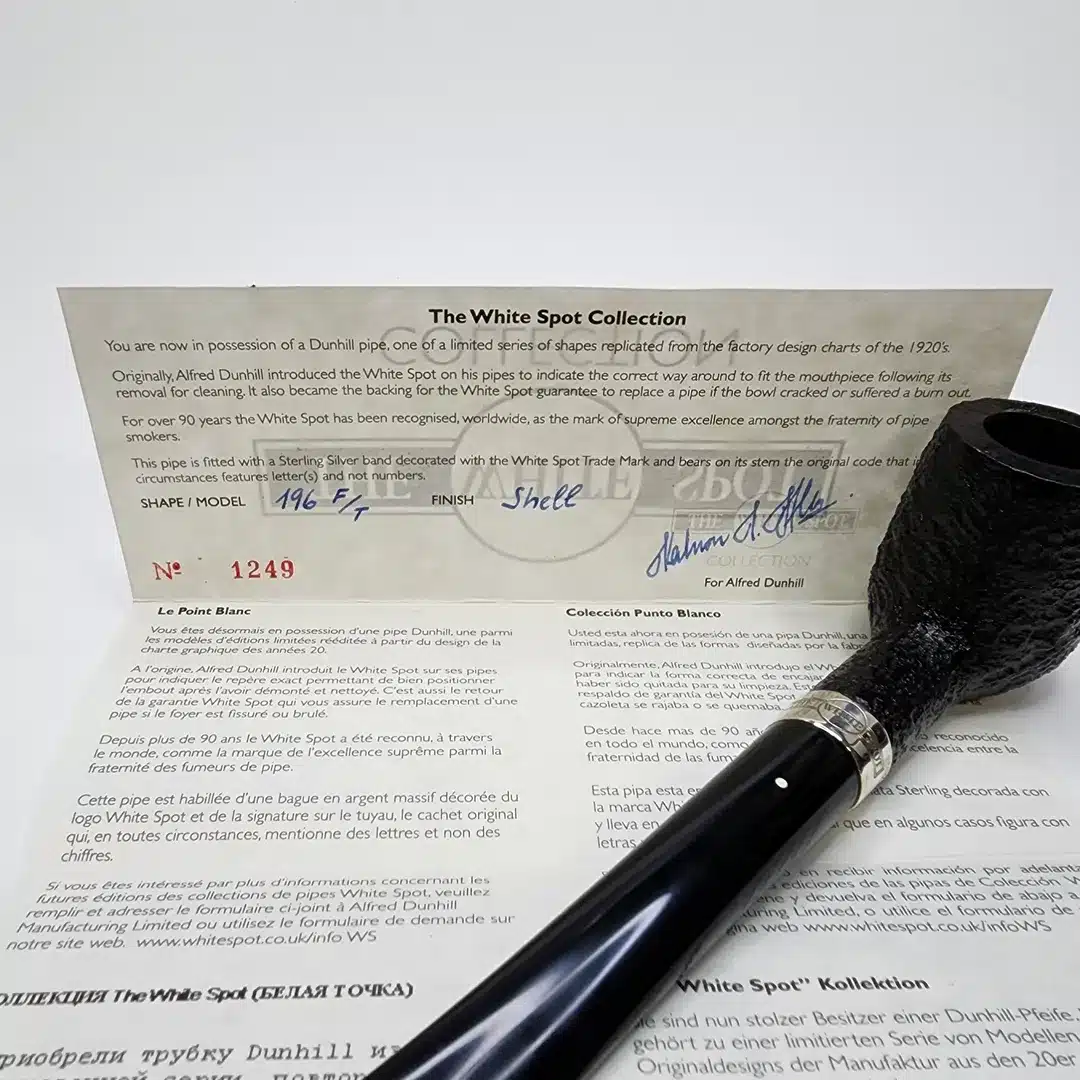 The White Spot Collection
You are now in possession of a Dunhill pipe, one of a limited series of shapes replicated from the factory design charts of the 1920's.
Originally, Alfred Dunhill introduced the White Spot on his pipes to indicate the correct way around to fit the mouthpiece following its
removal for cleaning. It also became the backing for the White Spot guarantee to replace a pipe if the bowl cracked or suffered a burn out.
For over 90 years the White Spot has been recognised, worldwide, as the mark of supreme excellence amongst the fraternity of pipe
smokers.
This pipe is fitted with a Sterling Silver band decorated with the White Spot Trade Mark and bears on its stem the original code that
circumstances features letter(s) and not numbers.
SHAPE / MODEL 196 F/T FINISH Shell
THE WHITE SPOT
COLLECTION
For Alfred Dunhill
Nº 1249
Le Point Blanc
Vous êtes désormais en possession d'une pipe Dunhill, une parmi
les modèles d'éditions limitées rééditée à partir du design de la
charte graphique des années 20.
A l'origine, Alfred Dunhill introduit le White Spot sur ses pipes
pour indiquer le repère exact permettant de bien positionner
l'embout après l'avoir démonté et nettoyé. C'est aussi le retour
de la garantie White Spot qui vous assure le remplacement d'une
pipe si le foyer est fissuré ou brulé.
Depuis plus de 90 ans le White Spot a été reconnu, à travers
le monde, comme la marque de l'excellence suprême parmi la
fraternité des fumeurs de pipe.
Cette pipe est habillée d'une bague en argent massif décorée du
logo White Spot et de la signature sur le tuyau, le cachet original
qui, en toutes circonstances, mentionne des lettres et non des
chiffres.
Si vous êtes intéressé par plus d'informations concernant les
futures éditions des collections de pipes White Spot, veuillez
remplir et adresser le formulaire ci-joint à Alfred Dunhill
Manufacturing Limited ou utilisez le formulaire de demande sur
notre site web. www.whitespot.co.uk/info WS
Colección Punto Blanco
Usted esta ahora en posesión de una pipa Dunhill, una
limitadas, replica de las formas diseñadas por la
Originalmente, Alfred Dunhill introdujo el
para indicar la forma correcta de
haber sido quitada para su limpieza.
respaldo de garantía del White Spot
cazoleta se rajaba o se quemaba
Desde hace mas de 90
en todo el mundo, como reconocido
fraternidad de las entre la
Esta pipa esta Sterling decorada con
la marca
y lleva en que en algunos casos figura con
letras
en recibir información por
ediciones de las pipas de Colección
y devuelva el formulario de abajo a
Limited, o utilice el formulario de
web www.whitespot.co.uk/infoWS
The White Spot (БЕЛАЯ ТОЧКА)
трубку Dunhill
White Spot" Kollektion
sind nun stolzer Besitzer einer Dunhill-Pfeife.
gehört zu einer limitierten Serie von Modellen
Originaldesigns der Manufaktur aus den 20er